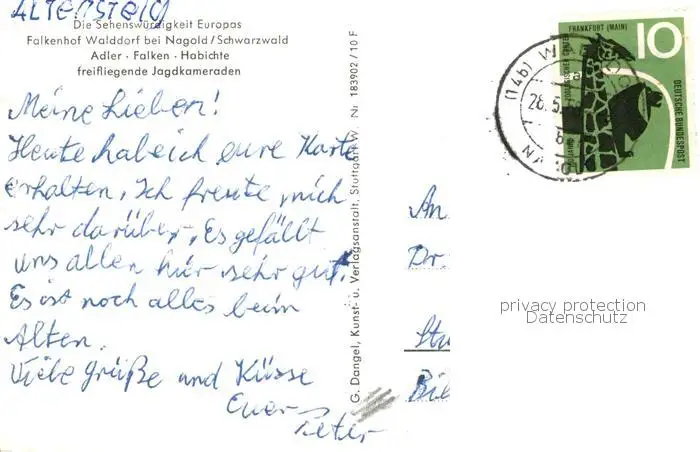 ALTENSTEIG
Die Sehenswürdigkeit Europas
Falkenhof Walddorf bei Nagold/Schwarzwald
Adler · Falken · Habichte
freifliegende Jagdkameraden
Meine Lieben!
Heute hab ich eure Karte
erhalten, Ich freute mich
sehr darüber, Es gefällt
uns allen hier sehr gut.
Es ist noch alles beim
Alten.
Viele Grüße und Küsse
Euer
Peter
G. Dangel, Kunst- u. Verlagsanstalt, Stuttgart W. Nr. 183902 / 10 F
(14b)
28.5.
FRANKFURT (MAIN)
10
DEUTSCHE BUNDESPOST
An
Dr.
privacy protection
Datenschutz
Stu
Bil